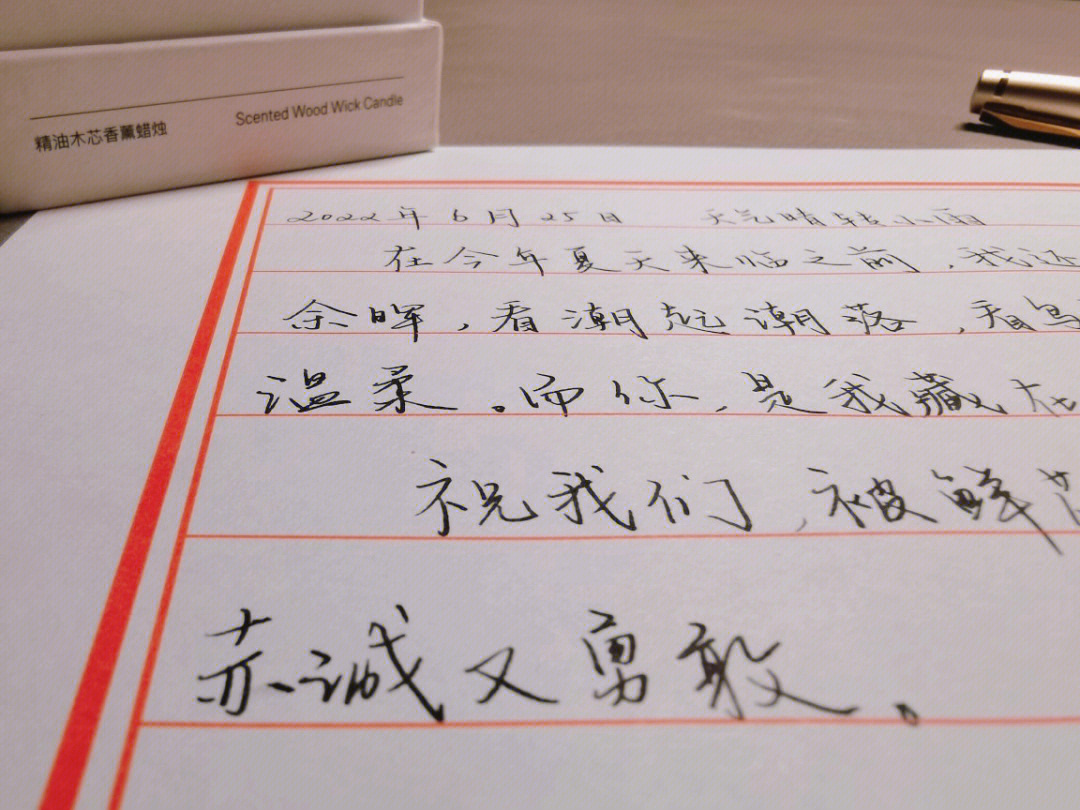 精油木芯香薰蜡烛 Scented Wood Wick Candle
2022年6月25日 天气晴转小雨
在今年夏天来临之前,我还
余晖,看潮起潮落,看鸟
温柔。而你,是我藏在
祝我们,被鲜花
赤诚又勇敢。